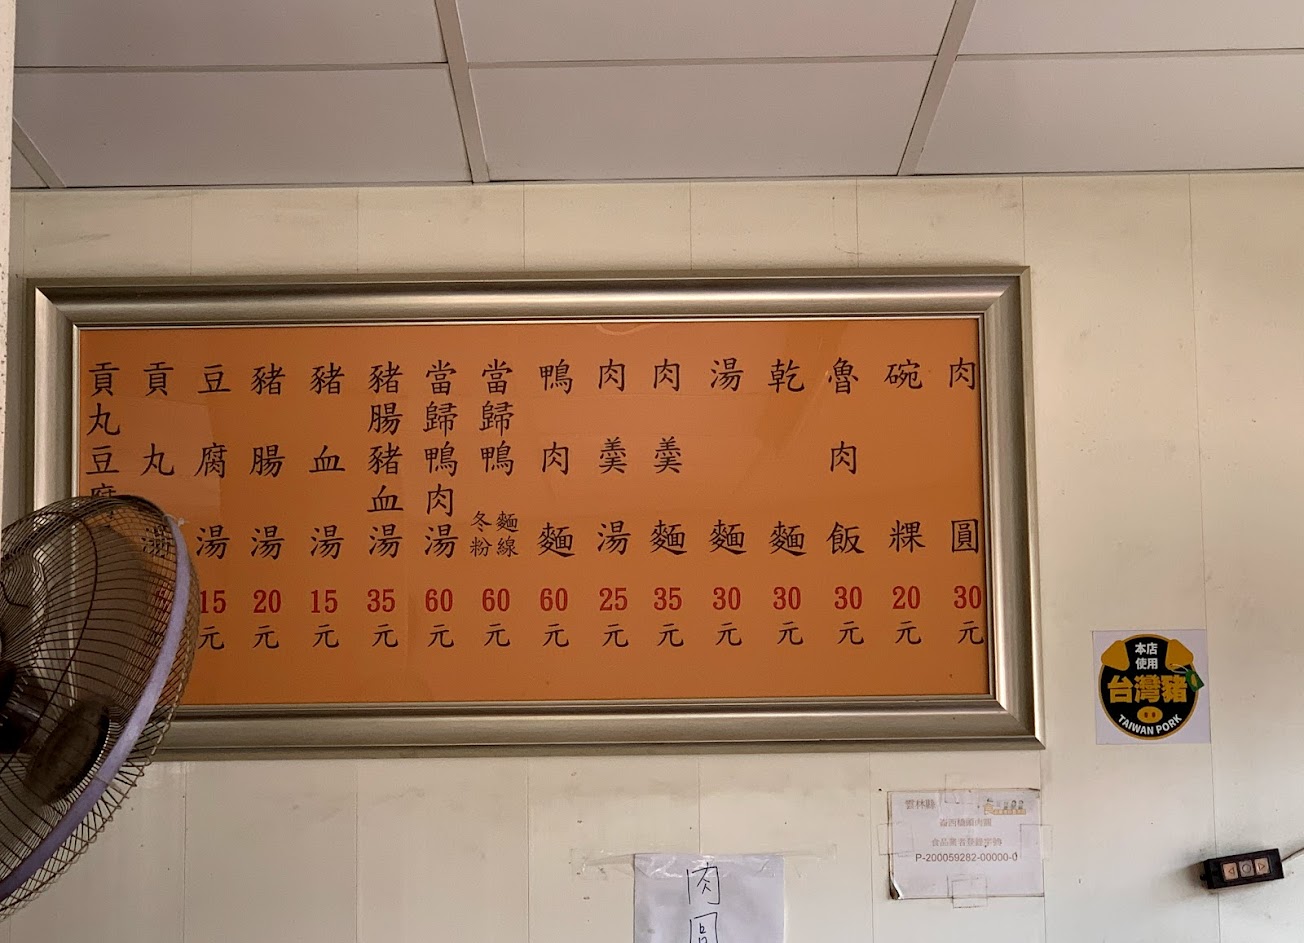 肉圓30元
碗粿20元
魯肉飯30元
乾麵30元
湯麵30元
肉羹麵35元
肉羹湯25元
鴨肉麵60元
當歸鴨麵線冬粉60元
當歸鴨肉湯60元
豬腸豬血湯35元
豬血湯15元
豬腸湯20元
豆腐湯15元
貢丸湯
貢丸豆腐
本店
使用
台灣豬
TAIWAN PORK
雲林縣
食品業者登錄字號
P-200059282-00000-0
肉圓